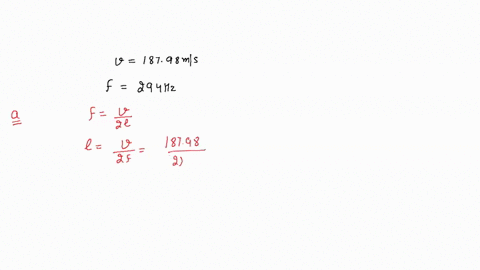 v = 187.98 m/s
f = 294 Hz
a f = v/2l
l = v/2f = 187.98/2)